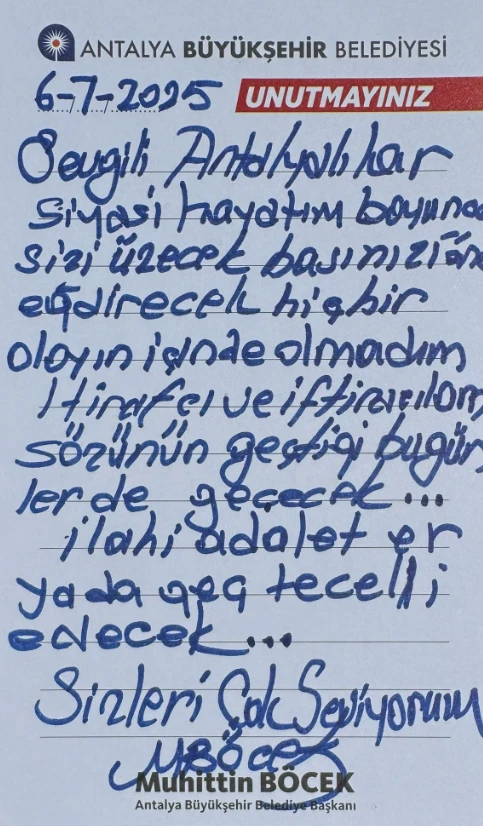 ANTALYA BÜYÜKŞEHİR BELEDİYESİ
6-7-2025 UNUTMAYINIZ
Sevgili Antalyalılar
siyasi hayatım boyunca
sizi üzecek başınızı öne
eğdirecek hiçbir
olayın içinde olmadım
Itirafcı ve iftiracıların
sözünün geçtiği bugün
lerde geçecek...
ilahi adalet er
yada geç tecelli
edecek...
Sizleri Çok Seviyorum
MBÖcek
Muhittin BÖCEK
Antalya Büyükşehir Belediye Başkanı